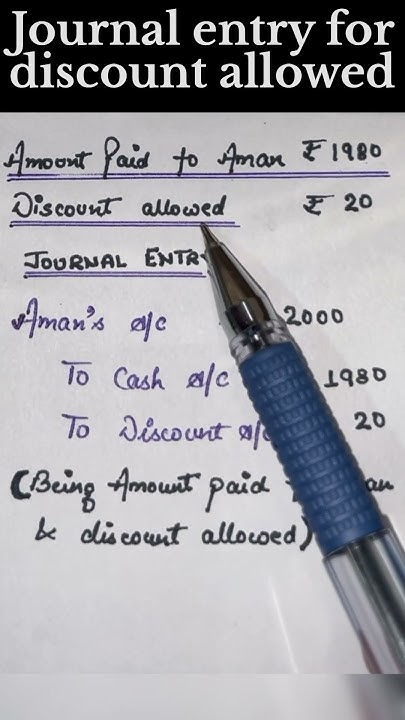 Journal entry for
discount allowed
Amount Paid to Aman ₹ 1980
Discount allowed ₹ 20
JOURNAL ENTR
Aman's a/c 2000
To Cash a/c 1980
To Discount a/c 20
(Being Amount paid an
& discount allowed)